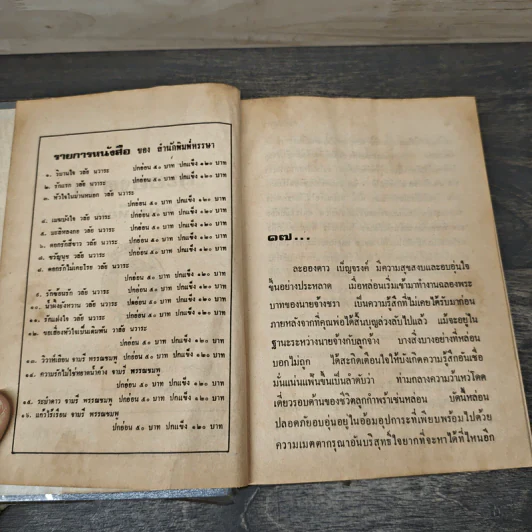 รายการหนังสือ ของ สำนักพิมพ์หรรษา
๑. วิมานใจ วลัย นวาระ
ปกอ่อน ๕๐ บาท ปกแข็ง ๑๒๐ บาท
๒. รักแรก วลัย นวาระ
ปกอ่อน ๕๐ บาท ปกแข็ง ๑๒๐ บาท
๓. หัวใจในม่านหมอก วลัย นวาระ
ปกอ่อน ๕๐ บาท ปกแข็ง ๑๒๐ บาท
๔. เมฆบังใจ วลัย นวาระ
ปกอ่อน ๕๐ บาท ปกแข็ง ๑๒๐ บาท
๕. มะลิหลงกอ วลัย นวาระ
ปกอ่อน ๕๐ บาท ปกแข็ง ๑๒๐ บาท
๖. ดอกรักสีขาว วลัย นวาระ
ปกอ่อน ๕๐ บาท ปกแข็ง ๑๒๐ บาท
๗. ขวัญนุช วลัย นวาระ
ปกอ่อน ๕๐ บาท ปกแข็ง ๑๒๐ บาท
๘. ดอกรักไม่เคยโรย วลัย นวาระ
ปกอ่อน ๕๐ บาท ปกแข็ง ๑๒๐ บาท
๙. รักซ้อนรัก วลัย นวาระ
ปกอ่อน ๕๐ บาท ปกแข็ง ๑๒๐ บาท
๑๐. น้ำผึ้งยังหวาน วลัย นวาระ
ปกอ่อน ๕๐ บาท ปกแข็ง ๑๒๐ บาท
๑๑. รักแต่งใจ วลัย นวาระ
ปกอ่อน ๕๐ บาท ปกแข็ง ๑๒๐ บาท
๑๒. ขอเสียงหัวใจเป็นเดิมพัน วลัย นวาระ
ปกอ่อน ๕๐ บาท ปกแข็ง ๑๒๐ บาท
๑๓. วิวาห์เลือน จามรี พรรณชมพู
ปกอ่อน ๕๐ บาท ปกแข็ง ๑๒๐ บาท
๑๔. ความรักไม่ใช่หยาดน้ำค้าง จามรี พรรณชมพู
ปกอ่อน ๕๐ บาท ปกแข็ง ๑๒๐ บาท
๑๕. ระบำดาว จามรี พรรณชมพู
ปกอ่อน ๕๐ บาท ปกแข็ง ๑๒๐ บาท
๑๖. แก้วไร้เรือน จามรี พรรณชมพู
ปกอ่อน ๕๐ บาท ปกแข็ง ๑๒๐ บาท
๑๗...
ละอองดาว เบ็ญจรงค์ มีความสุขสงบและอบอุ่นใจ
ขึ้นอย่างประหลาด เมื่อหล่อนเริ่มเข้ามาทำงานฉลองพระ
บาทของนายจ้างชรา เป็นความรู้สึกที่ไม่เคยได้รับมาก่อน
ภายหลังจากที่คุณพ่อได้สิ้นบุญล่วงลับไปแล้ว แม้จะอยู่ใน
ฐานะระหว่างนายจ้างกับลูกจ้าง บางสิ่งบางอย่างที่หล่อน
บอกไม่ถูก ได้สะกิดเตือนใจให้บังเกิดความรู้สึกอันเชื่อ
มั่นแน่นแฟ้นขึ้นเป็นลำดับว่า ท่ามกลางความว้าเหว่โดด
เดี่ยวรอบด้านของชีวิตลูกกำพร้าเช่นหล่อน บัดนี้หล่อน
ปลอดภัยอบอุ่นอยู่ในอ้อมอุปการะที่เพียบพร้อมไปด้วย
ความเมตตากรุณาอันบริสุทธิ์ใจยากที่จะหาได้ที่ไหนอีก